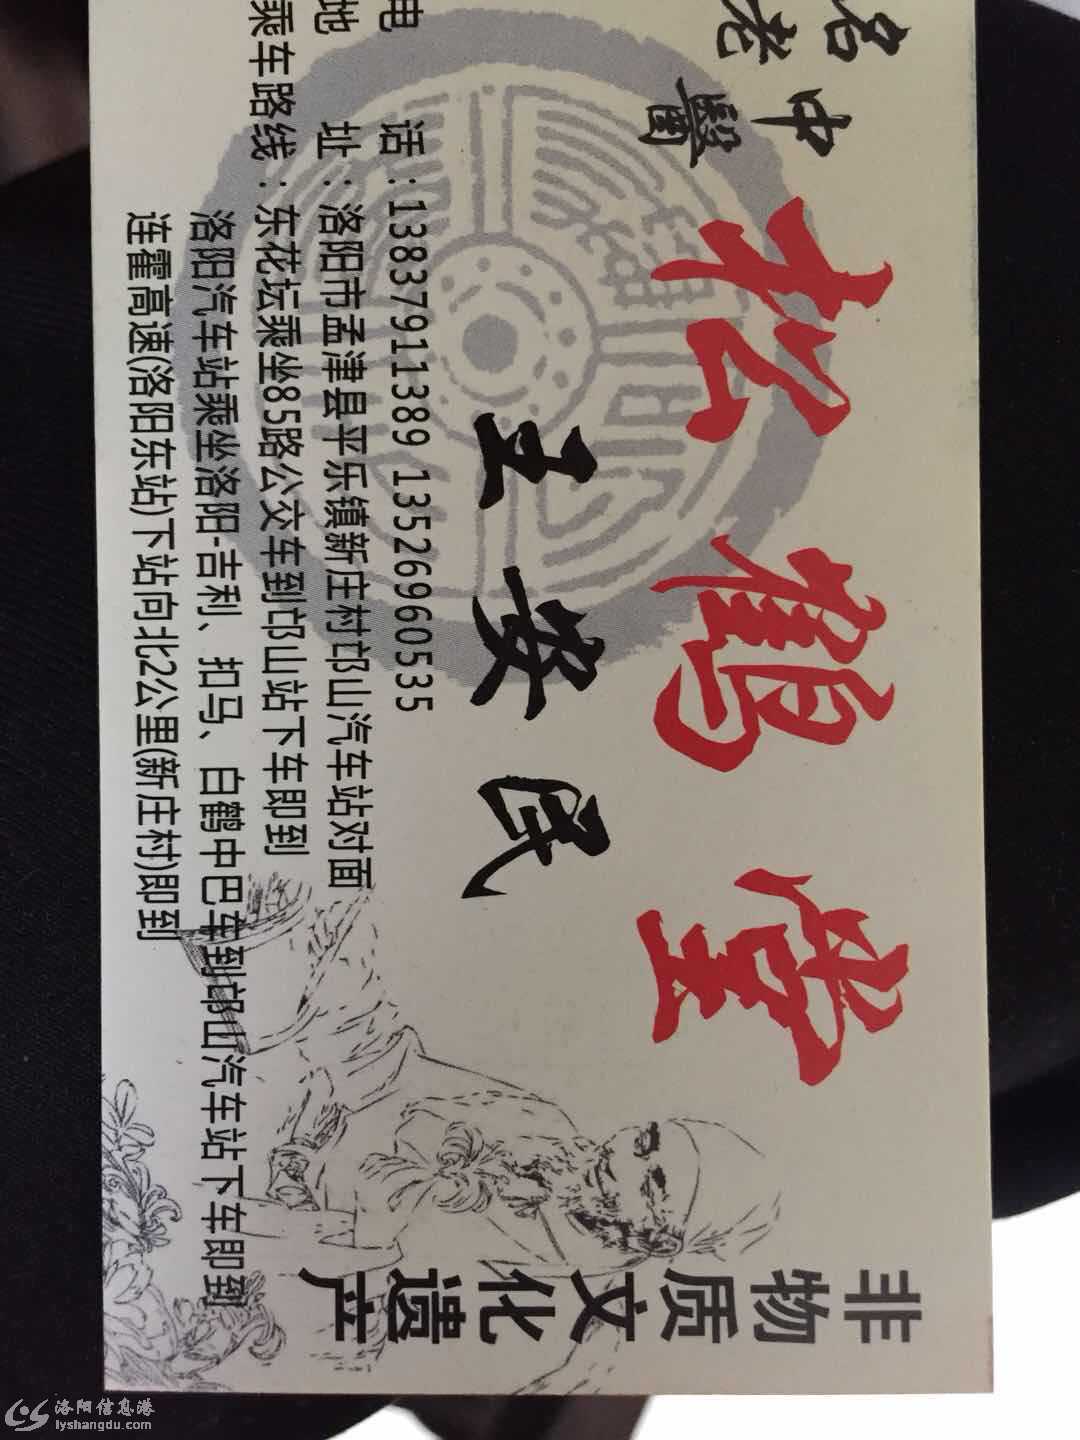 名老
中醫
松鹤堂
王安民
非物质文化遗产
电话:13837911389 13526960535
地址:洛阳市孟津县平乐镇新庄村邙山汽车站对面
乘车路线:东花坛乘坐85路公交车到邙山站下车即到
洛阳汽车站乘坐洛阳-吉利、扣马、白鹤中巴车到邙山汽车站下车即到
连霍高速(洛阳东站)下站向北2公里(新庄村)即到
洛阳信息港
lyshangdu.com